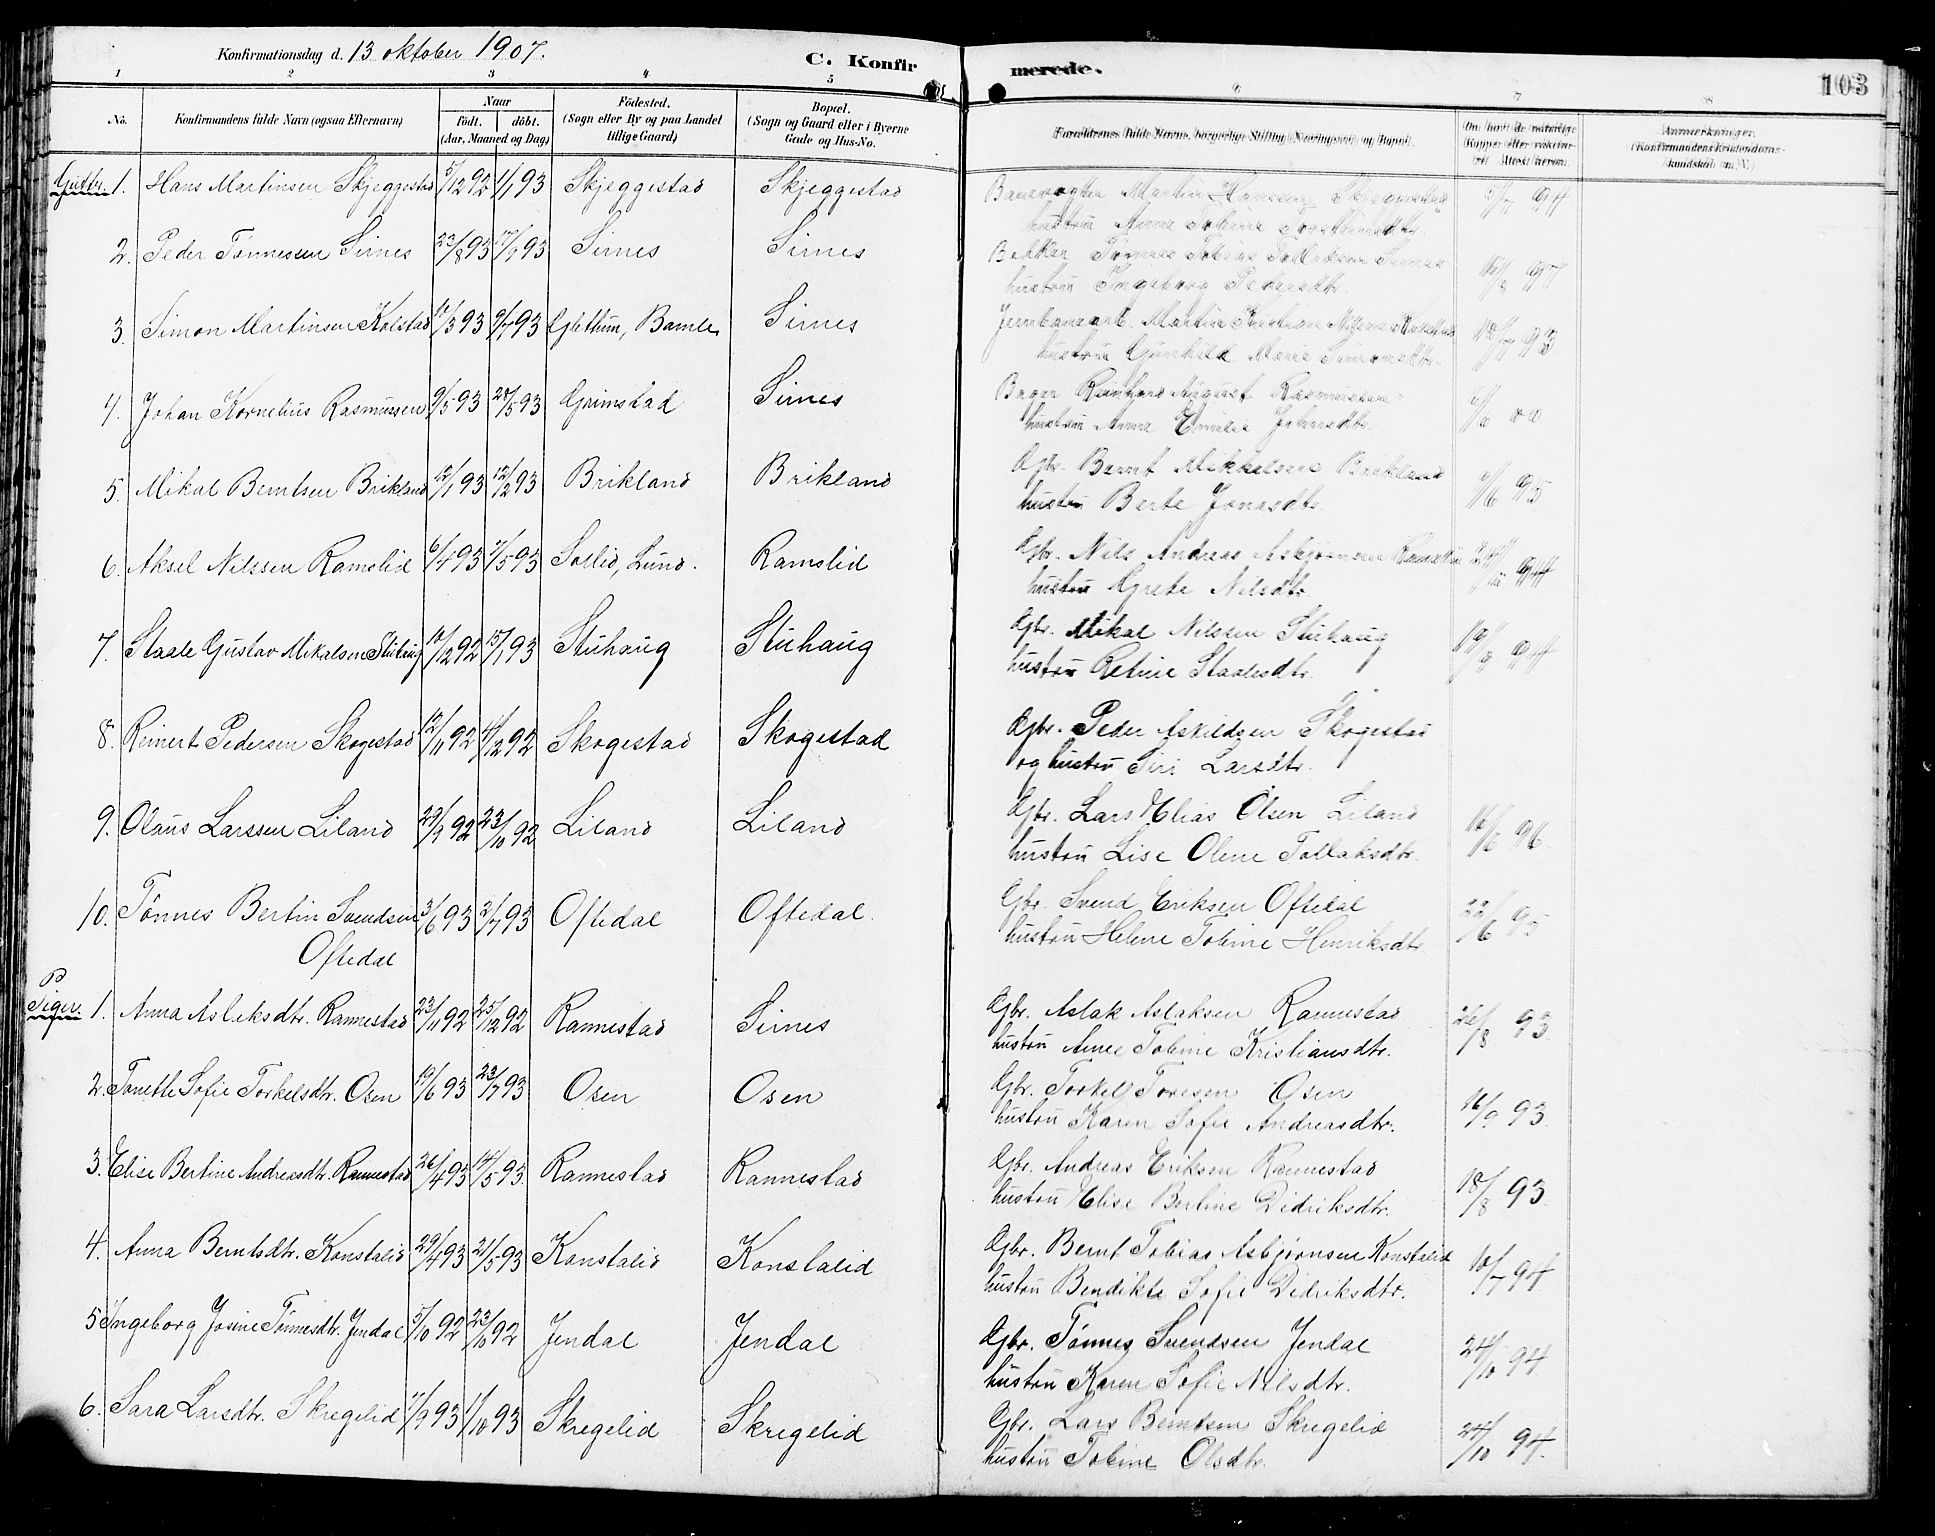 Konfirmationsdag d. 13 oktober 1907.
C. Konfirmerede.
103
1 2 3 4 5 6 7 8
No.
Konfirmandens fulde Navn (ogsaa Efternavn)
Naar
født. døbt.
(Aar, Maaned og Dag)
Fødested.
(Sogn eller By og paa Landet
tillige Gaard)
Bopæl.
(Sogn og Gaard eller i Byerne
Gade og Hus-No.
Forældrenes fulde Navne, borgerlige Stilling (Næringsvei) og Bopæl.
Anmærkninger.
Gutter. 1. Hans Martinsen Skjeggestad 5/12 92 1/1 93 Skjeggestad Skjeggestad Banevogter Martin Hansen Skjeggestad 5/7 94
hustru Anne Tobine
2. Peder Tønnesen Sirnes 23/8 93 17/9 93 Sirnes Sirnes Tønnes Tobias Tollaksen Sirnes
hustru Ingeborg Pedersdtr.
3. Simon Martinsen Kolstad 9/7 93 Gjettum, Bamle Sirnes Jernbanearb. Martin Kristian
hustru Gunhild Marie
4. Johan Kornelius Rasmussen 9/5 93 28/5 93 Grimstad Sirnes Bager Reinhard August Rasmussen
hustru Anne Emilie
5. Mikal Berntsen Brikland 12/1 93 12/2 93 Brikland Brikland Gbr. Bernt Mikkelsen Brikland 95
hustru Berte Jonasdtr.
6. Aksel Nilssen Ramslid 6/4 93 7/5 93 Sollid, Lund. Ramslid Gbr. Nils Andreas Asbjørnsen Ramslid 94
hustru Grete Nilsdtr.
7. Staale Gustav Mikalsen Stuhaug 10/12 92 15/1 93 Stuhaug Stuhaug Gbr. Mikal Nilssen Stuhaug 19/9 94
hustru Retine Staalesdtr.
8. Reinert Pedersen Skogestad 12/11 92 11/12 92 Skogestad Skogestad Gbr. Peder Askildsen Skogestad
og hustru Siri Larsdtr.
9. Olaus Larssen Liland 29/9 92 23/10 92 Liland Liland Gbr. Lars Elias Olsen Liland 16/6 96
hustru Lise Olene Tollaksdtr.
10. Tønnes Bertin Svendsen 3/6 93 2/7 93 Oftedal Oftedal. Gbr. Svend Eriksen Oftedal 22/6 95
Oftedal hustru Helene Tobine Henriksdtr.
Piger. 1. Anna Aslaksdtr. Rannestad 23/11 92 25/12 92 Rannestad Sirnes Gbr. Aslak Aslaksen Rannestad 26/8 93
hustru Anne Tobine Kristiansdtr.
2. Tonette Sofie Torkelsdtr. Osen 19/6 93 23/7 93 Osen Osen Gbr. Torkel Toresen Osen 16/9 93
hustru Karen Sofie Andreasdtr.
3. Elise Bertine Andreasdtr. Rannestad 26/4 93 14/5 93 Rannestad Rannestad Gbr. Andreas Eriksen Rannestad 18/8 93
hustru Elise Bertine Didriksdtr.
4. Anna Berntsdtr. Konstalid 29/4 93 21/5 93 Konstalid Konstalid Gbr. Bernt Tobias Asbjørnsen Konstalid 10/7 94
hustru Bendikte Sofie Didriksdtr.
5 Ingeborg Josine Tønnesdtr. Jendal 5/10 92 23/10 92 Jendal Jendal Gbr. Tønnes Svendsen Jendal 24/10 94
hustru Karen Sofie Nilsdtr.
6. Sara Larsdtr. Skregelid 11/9 93 1/10 93 Skregelid Skregelid Gbr. Lars Berntsen Skregelid 24/10 94.
hustru Tobine Olsdtr.